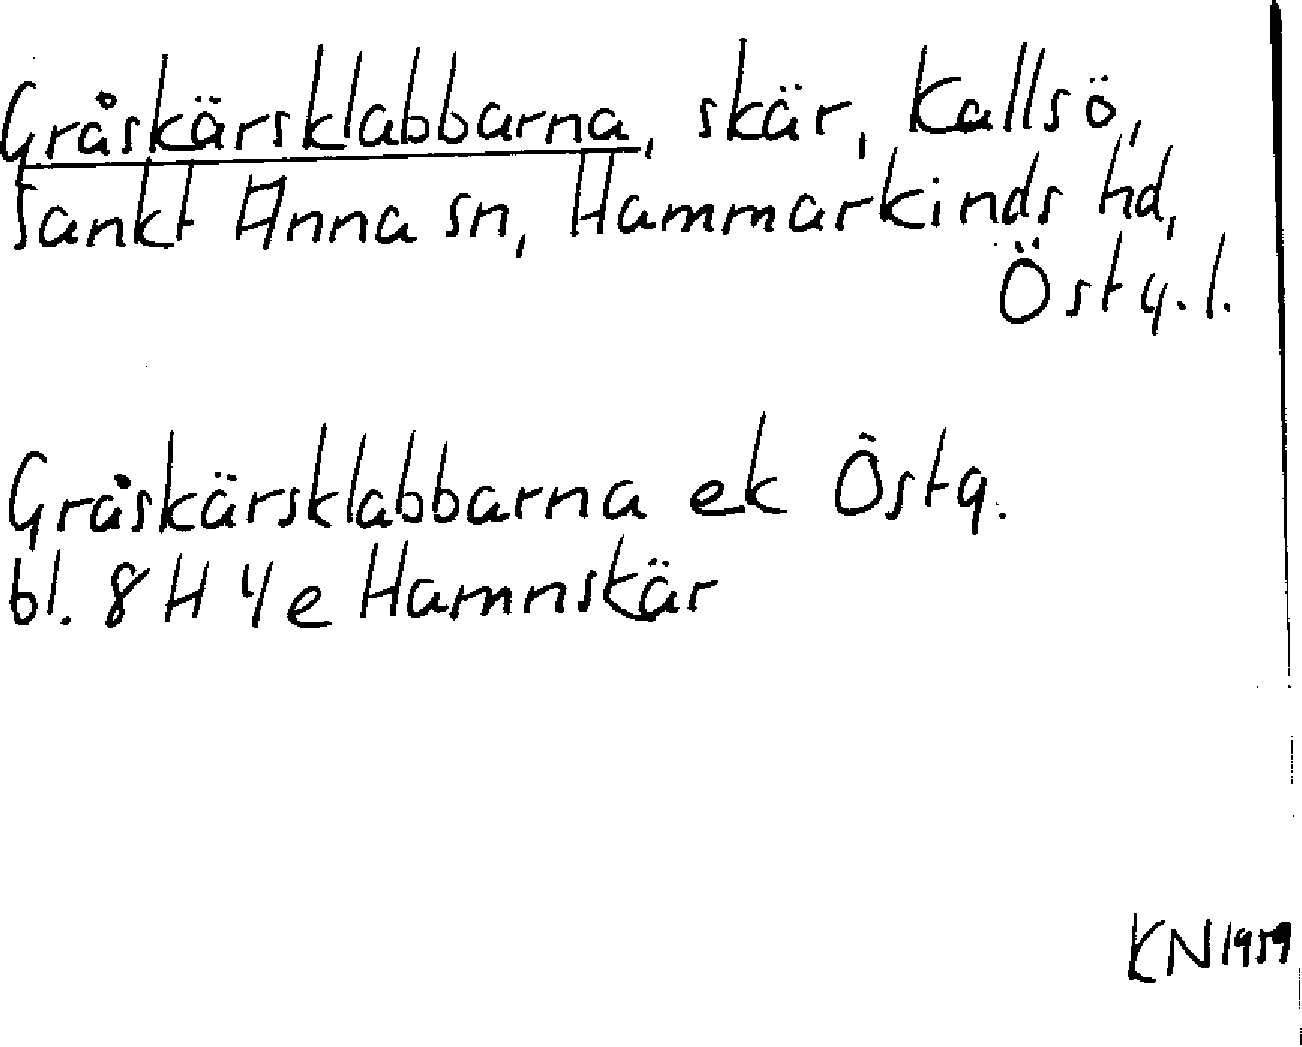 Gråskärsklabbarna, skär, Kallsö,
Sankt Anna sn, Hammarkinds hd,
Östg.l.
Gråskärsklabbarna ek Östg.
bl. 8 H 4e Hamnskär
KN 1959